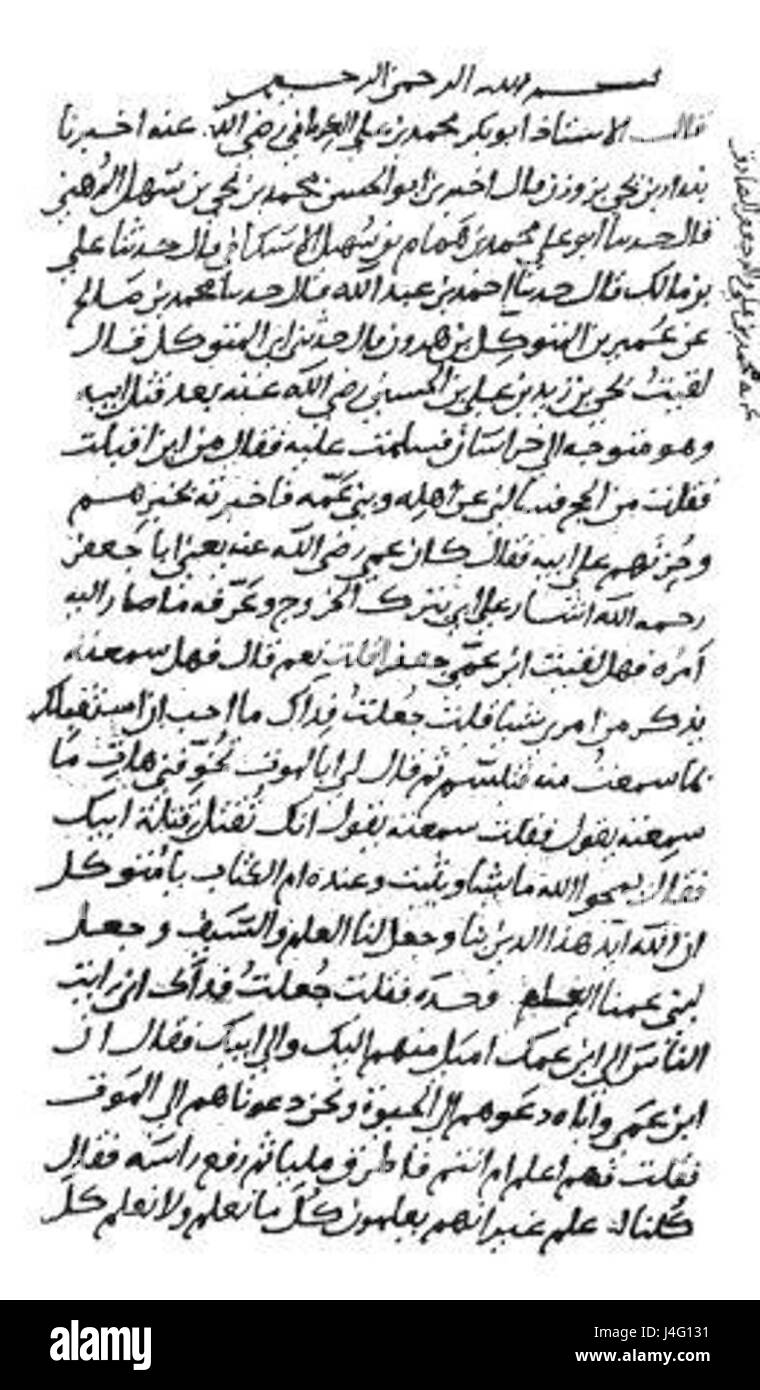 بسم الله الرحمن الرحيم
قال الاستاذ ابو بكر محمد بن علي رضي الله عنه اخبرنا
قال اخبرنا ابو الحسن محمد بن يحيى بن سهل الرهني
قال حدثنا ابو علي محمد بن همام بن سهيل الاسكافي قال حدثنا علي
بن مالك قال حدثنا احمد بن عبد الله قال حدثنا محمد بن صالح
عن عمير بن المتوكل بن هرون قال حدثني ابي المتوكل قال
لقيت يحيى بن زيد بن علي بن الحسين رضي الله عنه بعد قتل ابيه
وهو متوجه الى خراسان فسلمت عليه فقال من اين اقبلت
فقلت من الحج فسالني عن اهله وبني عمه فاخبرته بخبرهم
وحزنهم على ابيه فقال كان عمي رضي الله عنه يعني ابا جعفر
رحمه الله اشار على ابي بترك الخروج وعرفه ما صار اليه
امره فهل لقيت ابن عمي جعفرا قلت نعم قال فهل سمعته
يذكر من امري شيا قلت جعلت فداك ما احب ان استقبلك
بما سمعت منه فتبسم ثم قال لي ابالموت تخوفني هات ما
سمعته فقلت سمعته يقول انك تقتل قتلة ابيك
فقال يمحوا الله ما يشا ويثبت وعنده ام الكتاب يا متوكل
ان الله ايد هذا الدين بنا وجعل لنا العلم والسيف وجعل
لبني عمنا العلم وحده فقلت جعلت فداك اني رايت
الناس الى ابن عمك اميل منهم اليك والى ابيك فقال ان
ابن عمي واباه دعوهم الى الحيوة ونحن دعوناهم الى الموت
فقلت فهم اعلم ام انتم فاطرق مليا ثم رفع راسه فقال
كلنا له علم غير انهم يعلمون كل ما نعلم ولا نعلم كل
alamy
Image ID: J4G131
www.alamy.com